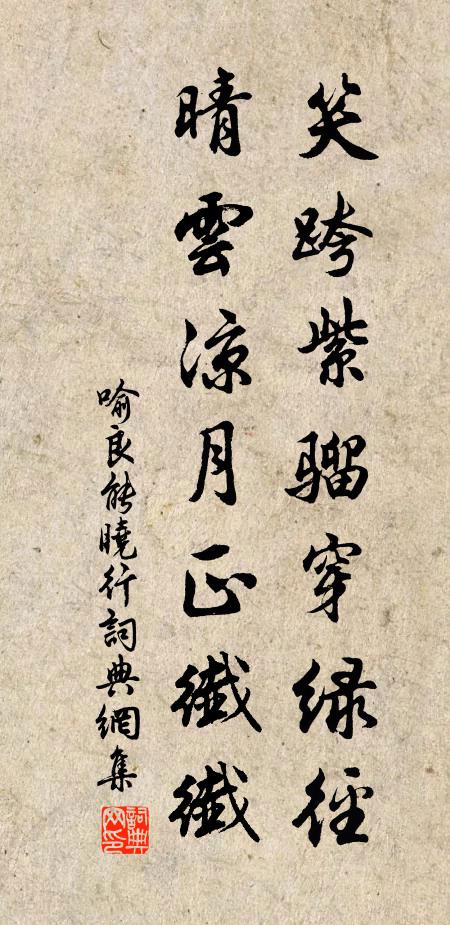 笑跨紫骝穿绿徑
晴雲涼月正纖纖
喻良能曉行詞典網集
詞典网印